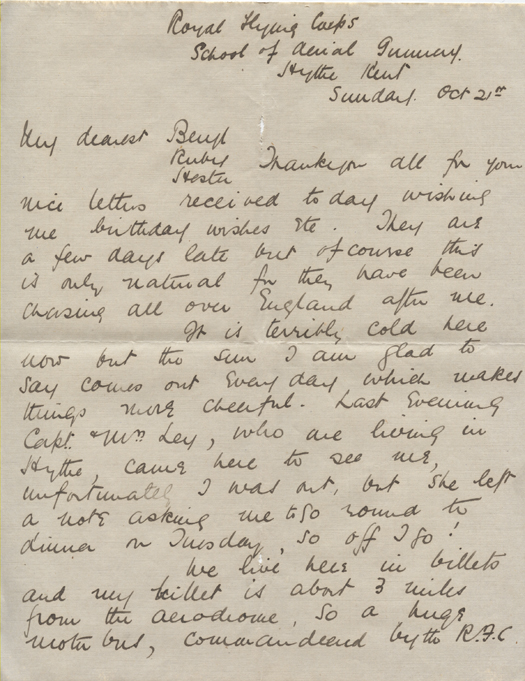 Royal Flying Corps
School of Aerial Gunnery.
Hythe Kent
Sunday. Oct 21st
My dearest Beryl
Ruby
Hester Thankyou all for your
nice letters received today wishing
me birthday wishes etc. They are
a few days late but ofcourse this
is only natural for they have been
chasing all over England after me.
It is terribly cold here
now but the sun I am glad to
say comes out every day, which makes
things more cheerful. Last evening
Capt. & Mrs Ley, who are living in
Hythe, came here to see me,
unfortunately I was out, but she left
a note asking me to go round to
dinner on Tuesday, so off I go!
We live here in billets
and my billet is about 3 miles
from the aerodrome, so a huge
motor bus, commandeered by the R.F.C.